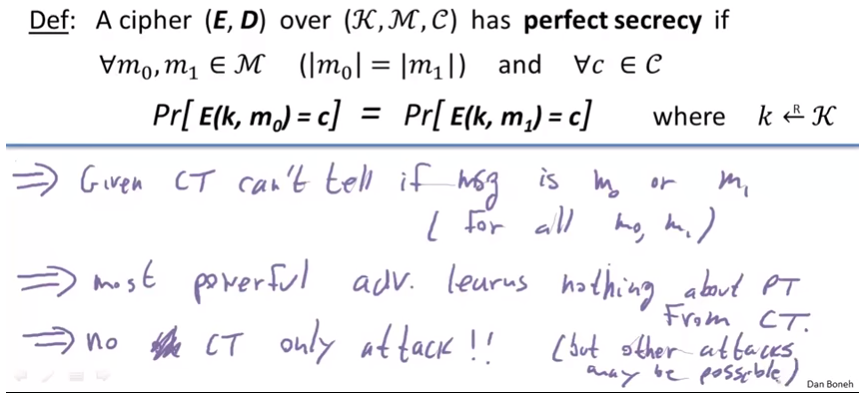 Def: A cipher (E, D) over (𝒦, ℳ, 𝒞) has perfect secrecy if
∀m₀, m₁ ∈ ℳ (|m₀| = |m₁|) and ∀c ∈ 𝒞
Pr[ E(k, m₀) = c] = Pr[ E(k, m₁) = c] where k ←ᴿ 𝒦
⇒ Given CT can't tell if msg is m₀ or m₁
( for all m₀, m₁ )
⇒ most powerful adv. learns nothing about PT
From CT.
⇒ no CT only attack !! (but other attacks
may be possible)
Dan Boneh